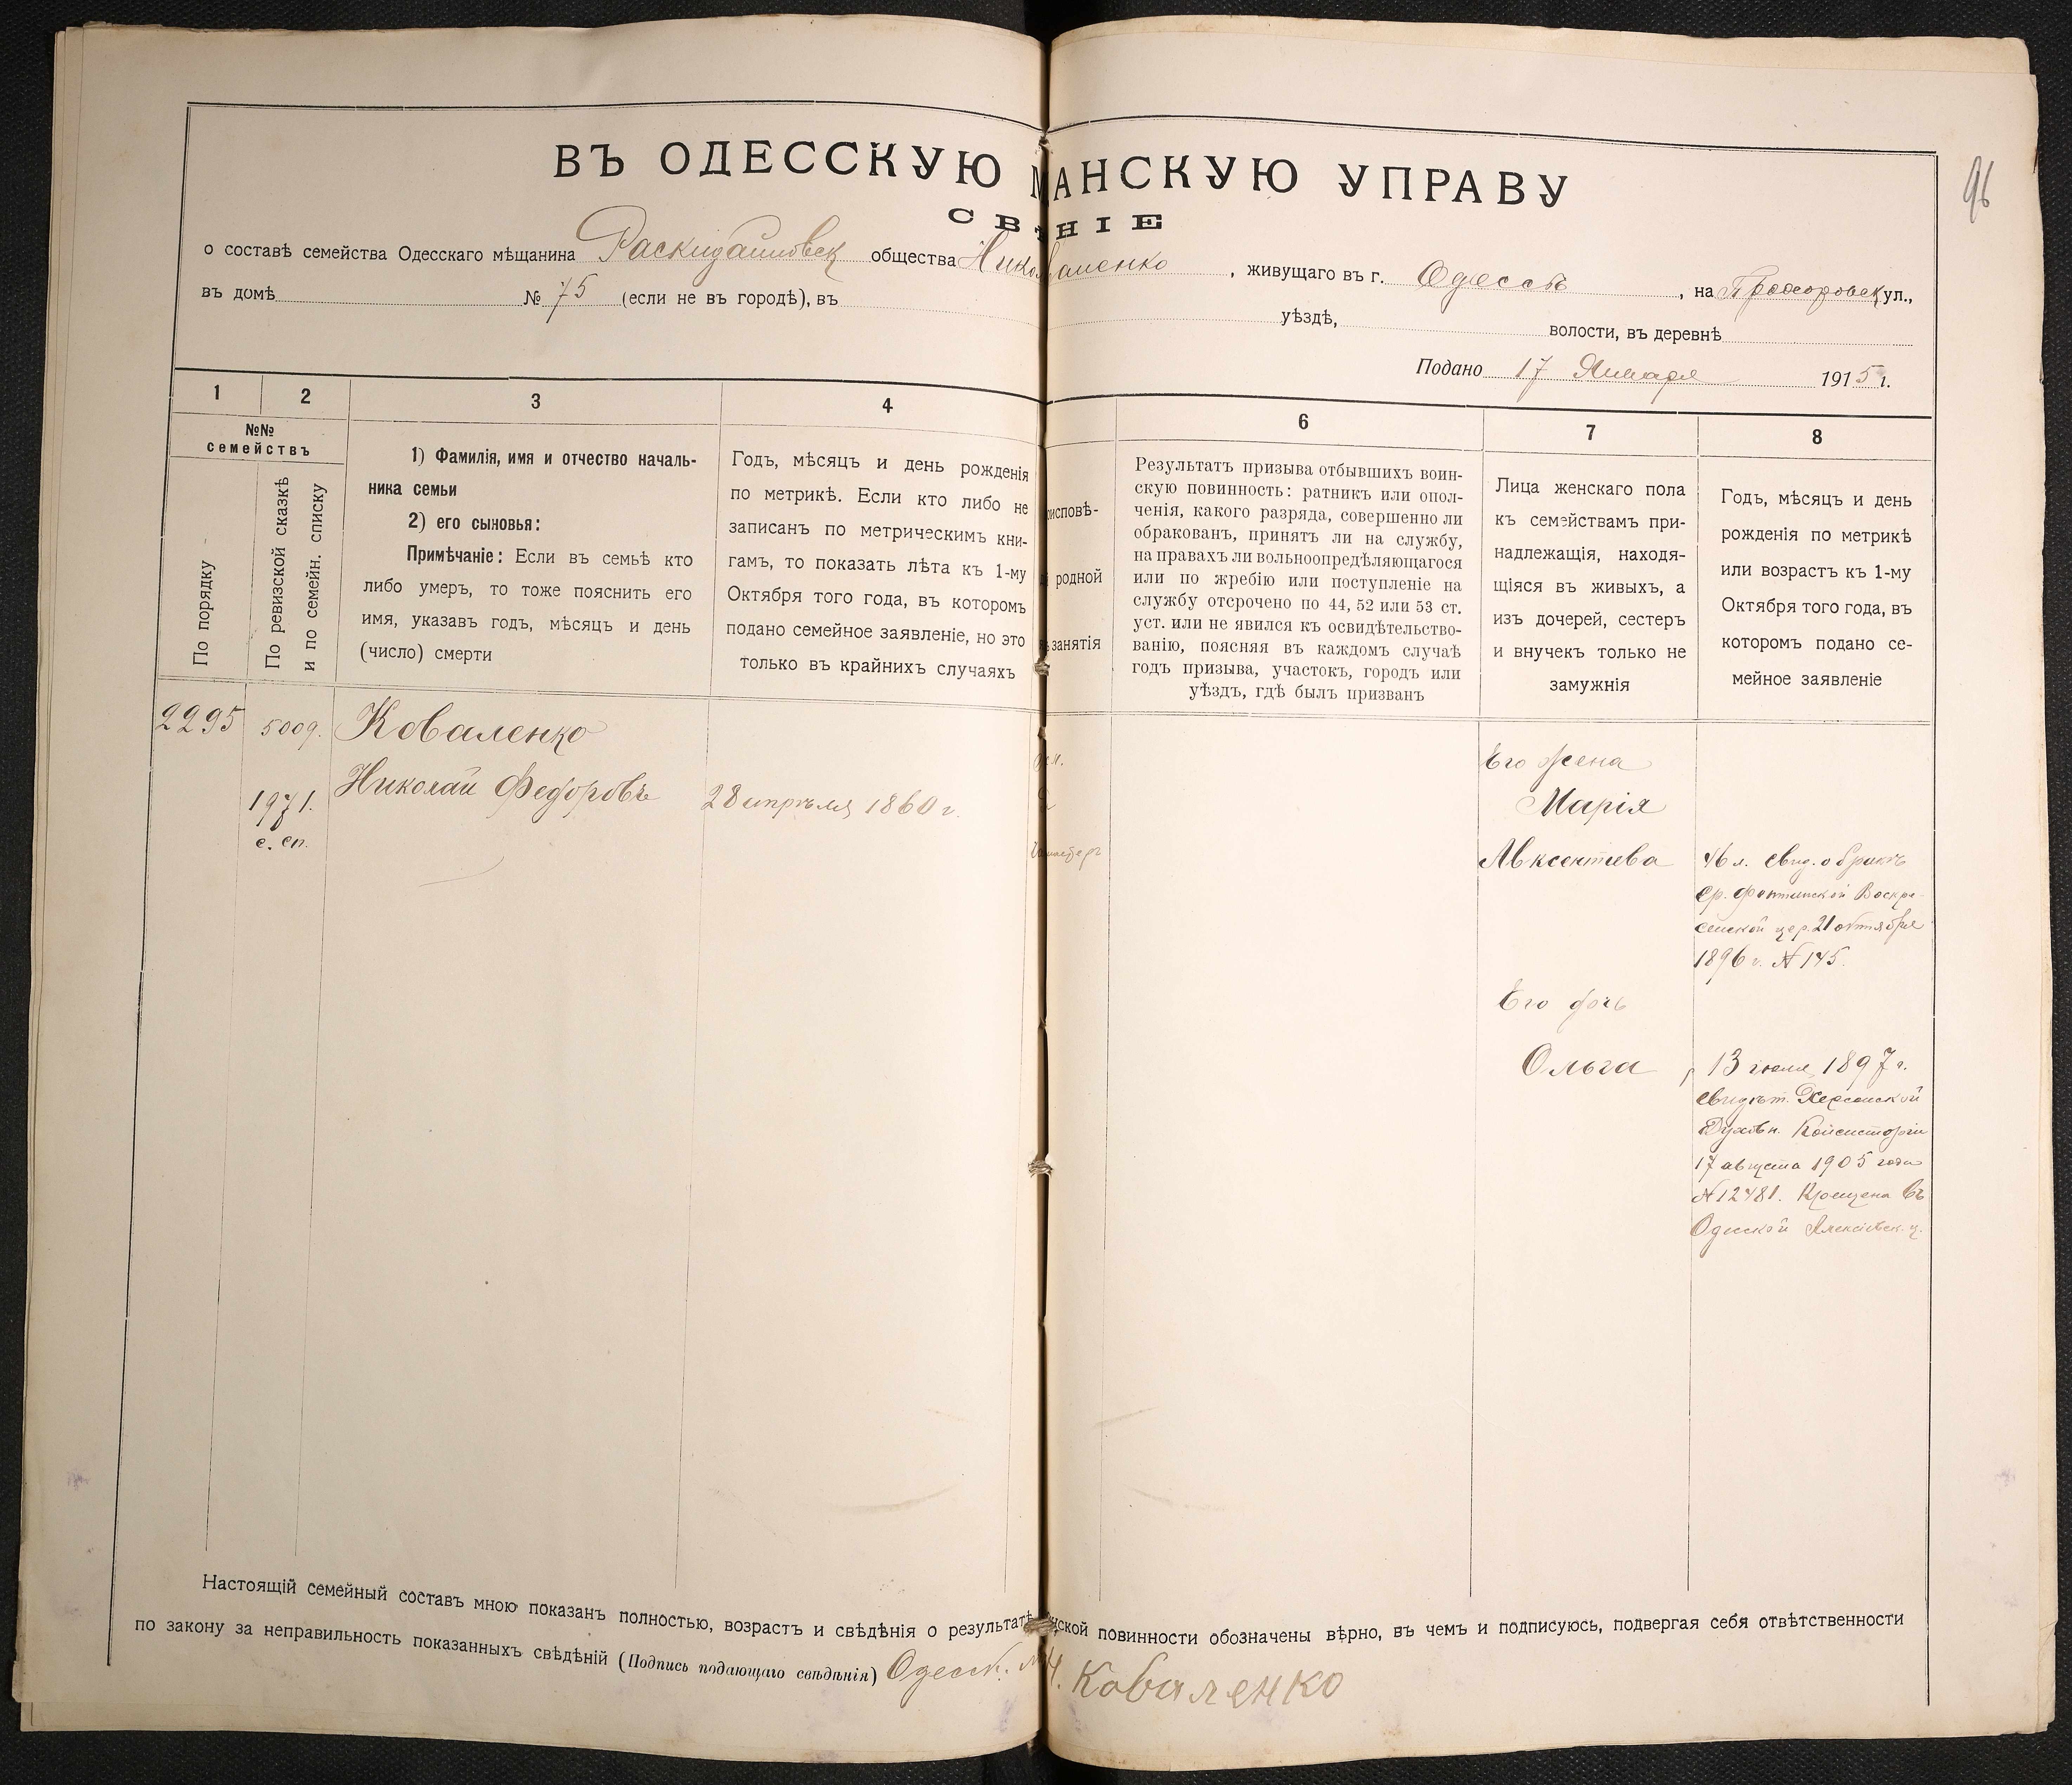 96
ВЪ ОДЕССКУЮ МАНСКУЮ УПРАВУ
СВ НІЕ
о составѣ семейства Одесскаго мѣщанина Раскидайловск общества Нико валенко, живущаго въ г. Одессѣ, на Прохоровск ул.,
въ домѣ № 75 (если не въ городѣ), въ уѣздѣ, волости, въ деревнѣ
Подано 17 Января 1915 г.
1 2 3 4 6 7 8
№№
семействъ
По порядку
По ревизской сказкѣ
и по семейн. списку
1) Фамилія, имя и отчество началь-
ника семьи
2) его сыновья:
Примѣчаніе: Если въ семьѣ кто
либо умеръ, то тоже пояснить его
имя, указавъ годъ, мѣсяцъ и день
(число) смерти
Годъ, мѣсяцъ и день рожденія
по метрикѣ. Если кто либо не
записанъ по метрическимъ кни-
гамъ, то показать лѣта къ 1-му
Октября того года, въ которомъ
подано семейное заявленіе, но это
только въ крайнихъ случаяхъ
исповѣ-
родной
занятія
Результатъ призыва отбывшихъ воин-
скую повинность: ратникъ или опол-
ченія, какого разряда, совершенно ли
обракованъ, принятъ ли на службу,
на правахъ ли вольноопредѣляющагося
или по жребію или поступленіе на
службу отсрочено по 44, 52 или 53 ст.
уст. или не явился къ освидѣтельство-
ванію, поясняя въ каждомъ случаѣ
годъ призыва, участокъ, городъ или
уѣздъ, гдѣ былъ призванъ
Лица женскаго пола
къ семействамъ при-
надлежащія, находя-
щіяся въ живыхъ, а
изъ дочерей, сестеръ
и внучекъ только не
замужнія
Годъ, мѣсяцъ и день
рожденія по метрикѣ
или возрастъ къ 1-му
Октября того года, въ
которомъ подано се-
мейное заявленіе
2295 5009. Коваленко
Николай Федоровъ 28 апрѣля 1860 г.
1971.
с. сп.
Его жена
Марія
Авксентіева
46 л. свид. о бракѣ
Ср. Фонтанской Воскре-
сенской цер. 21 октября
1896 г. № 145.
Его дочь
Ольга
13 іюля 1897 г.
свидѣт. Херсонской
Духовн. Консисторіи
17 августа 1905 года
№ 12481. Крещена въ
Одесской Алексіевск. ц.
Настоящій семейный составъ мною показанъ полностью, возрастъ и свѣдѣнія о результатѣ нской повинности обозначены вѣрно, въ чемъ и подписуюсь, подвергая себя отвѣтственности
по закону за неправильность показанныхъ свѣдѣній (Подпись подающаго свѣдѣнія) Одесск. Н. Коваленко